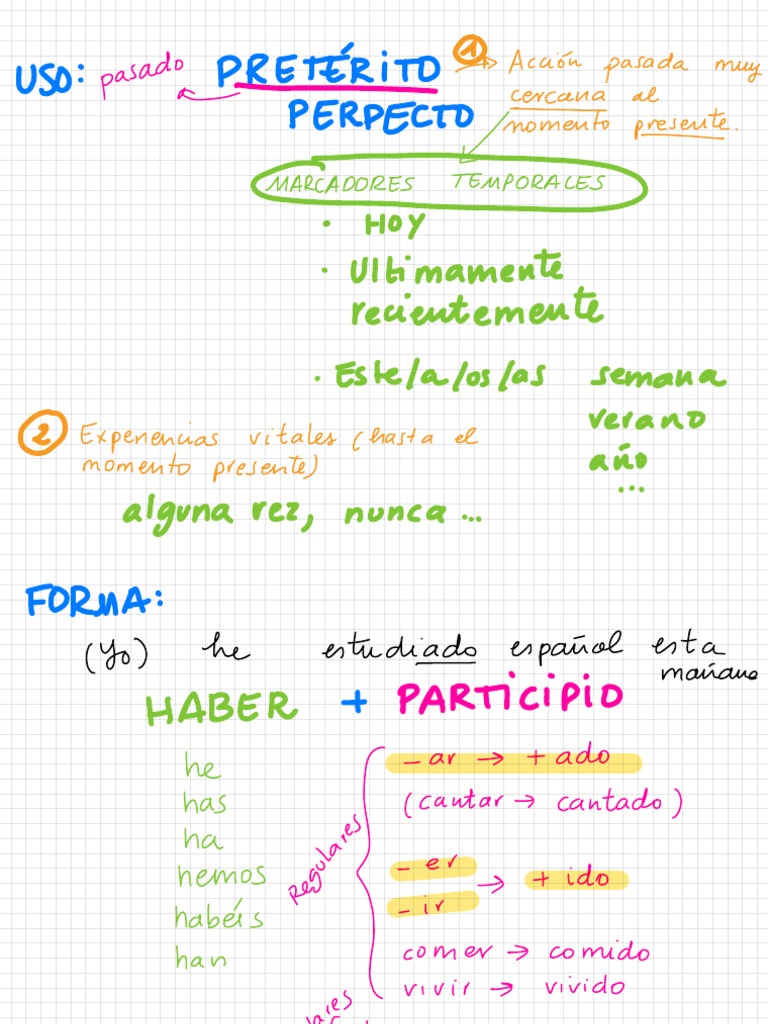 USO: pasado PRETÉRITO PERPECTO
① → Acción pasada muy
cercana al
momento presente.
MARCADORES TEMPORALES
· Hoy
· Ultimamente
recientemente
· Este/a/os/as semana
verano
año
...
② Experiencias vitales (hasta el
momento presente)
alguna vez, nunca ...
FORMA:
(Yo) he estudiado español esta
mañana
HABER + PARTICIPIO
he
has
ha
hemos
habéis
han
Regulares
- ar → + ado
(cantar → cantado)
- er
- ir
→ + ido
comer → comido
vivir → vivido